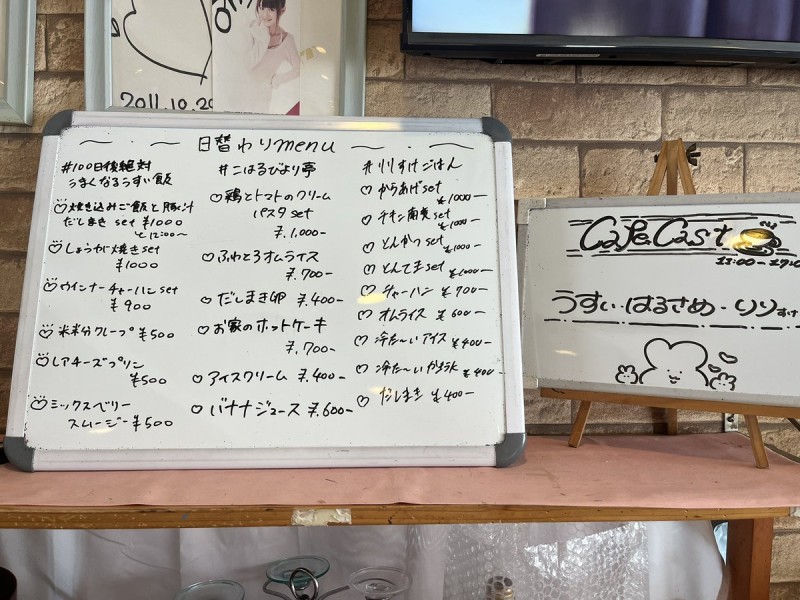 2011.10.29
日替わりmenu
#100日後絶対
うまくなるうすい飯
焼き込みご飯と豚汁
だしまき set ¥1000
と12:00〜
しょうが焼きset
¥1000
ウインナーチャーハンset
¥900
米米分クレープ ¥500
レアチーズプリン
¥500
ミックスベリー
スムージー ¥500
#こはるびより亭
鶏とトマトのクリーム
パスタset
¥.1,000-
ふわとろオムライス
¥.700-
だしまき卵 ¥.400-
お家のホットケーキ
¥.700-
アイスクリーム ¥.400-
バナナジュース ¥.600-
#りりすけごはん
からあげset
¥1000-
チキン南蛮set
¥1000-
とんかつset
¥1000-
とんてきset ¥1000-
チャーハン ¥700-
オムライス ¥600-
冷た〜いアイス
¥400-
冷た〜いかき氷 ¥400-
だしまき ¥400-
Cafe Cast
11:00-17:0
うすい・はるさめ・りりすけ